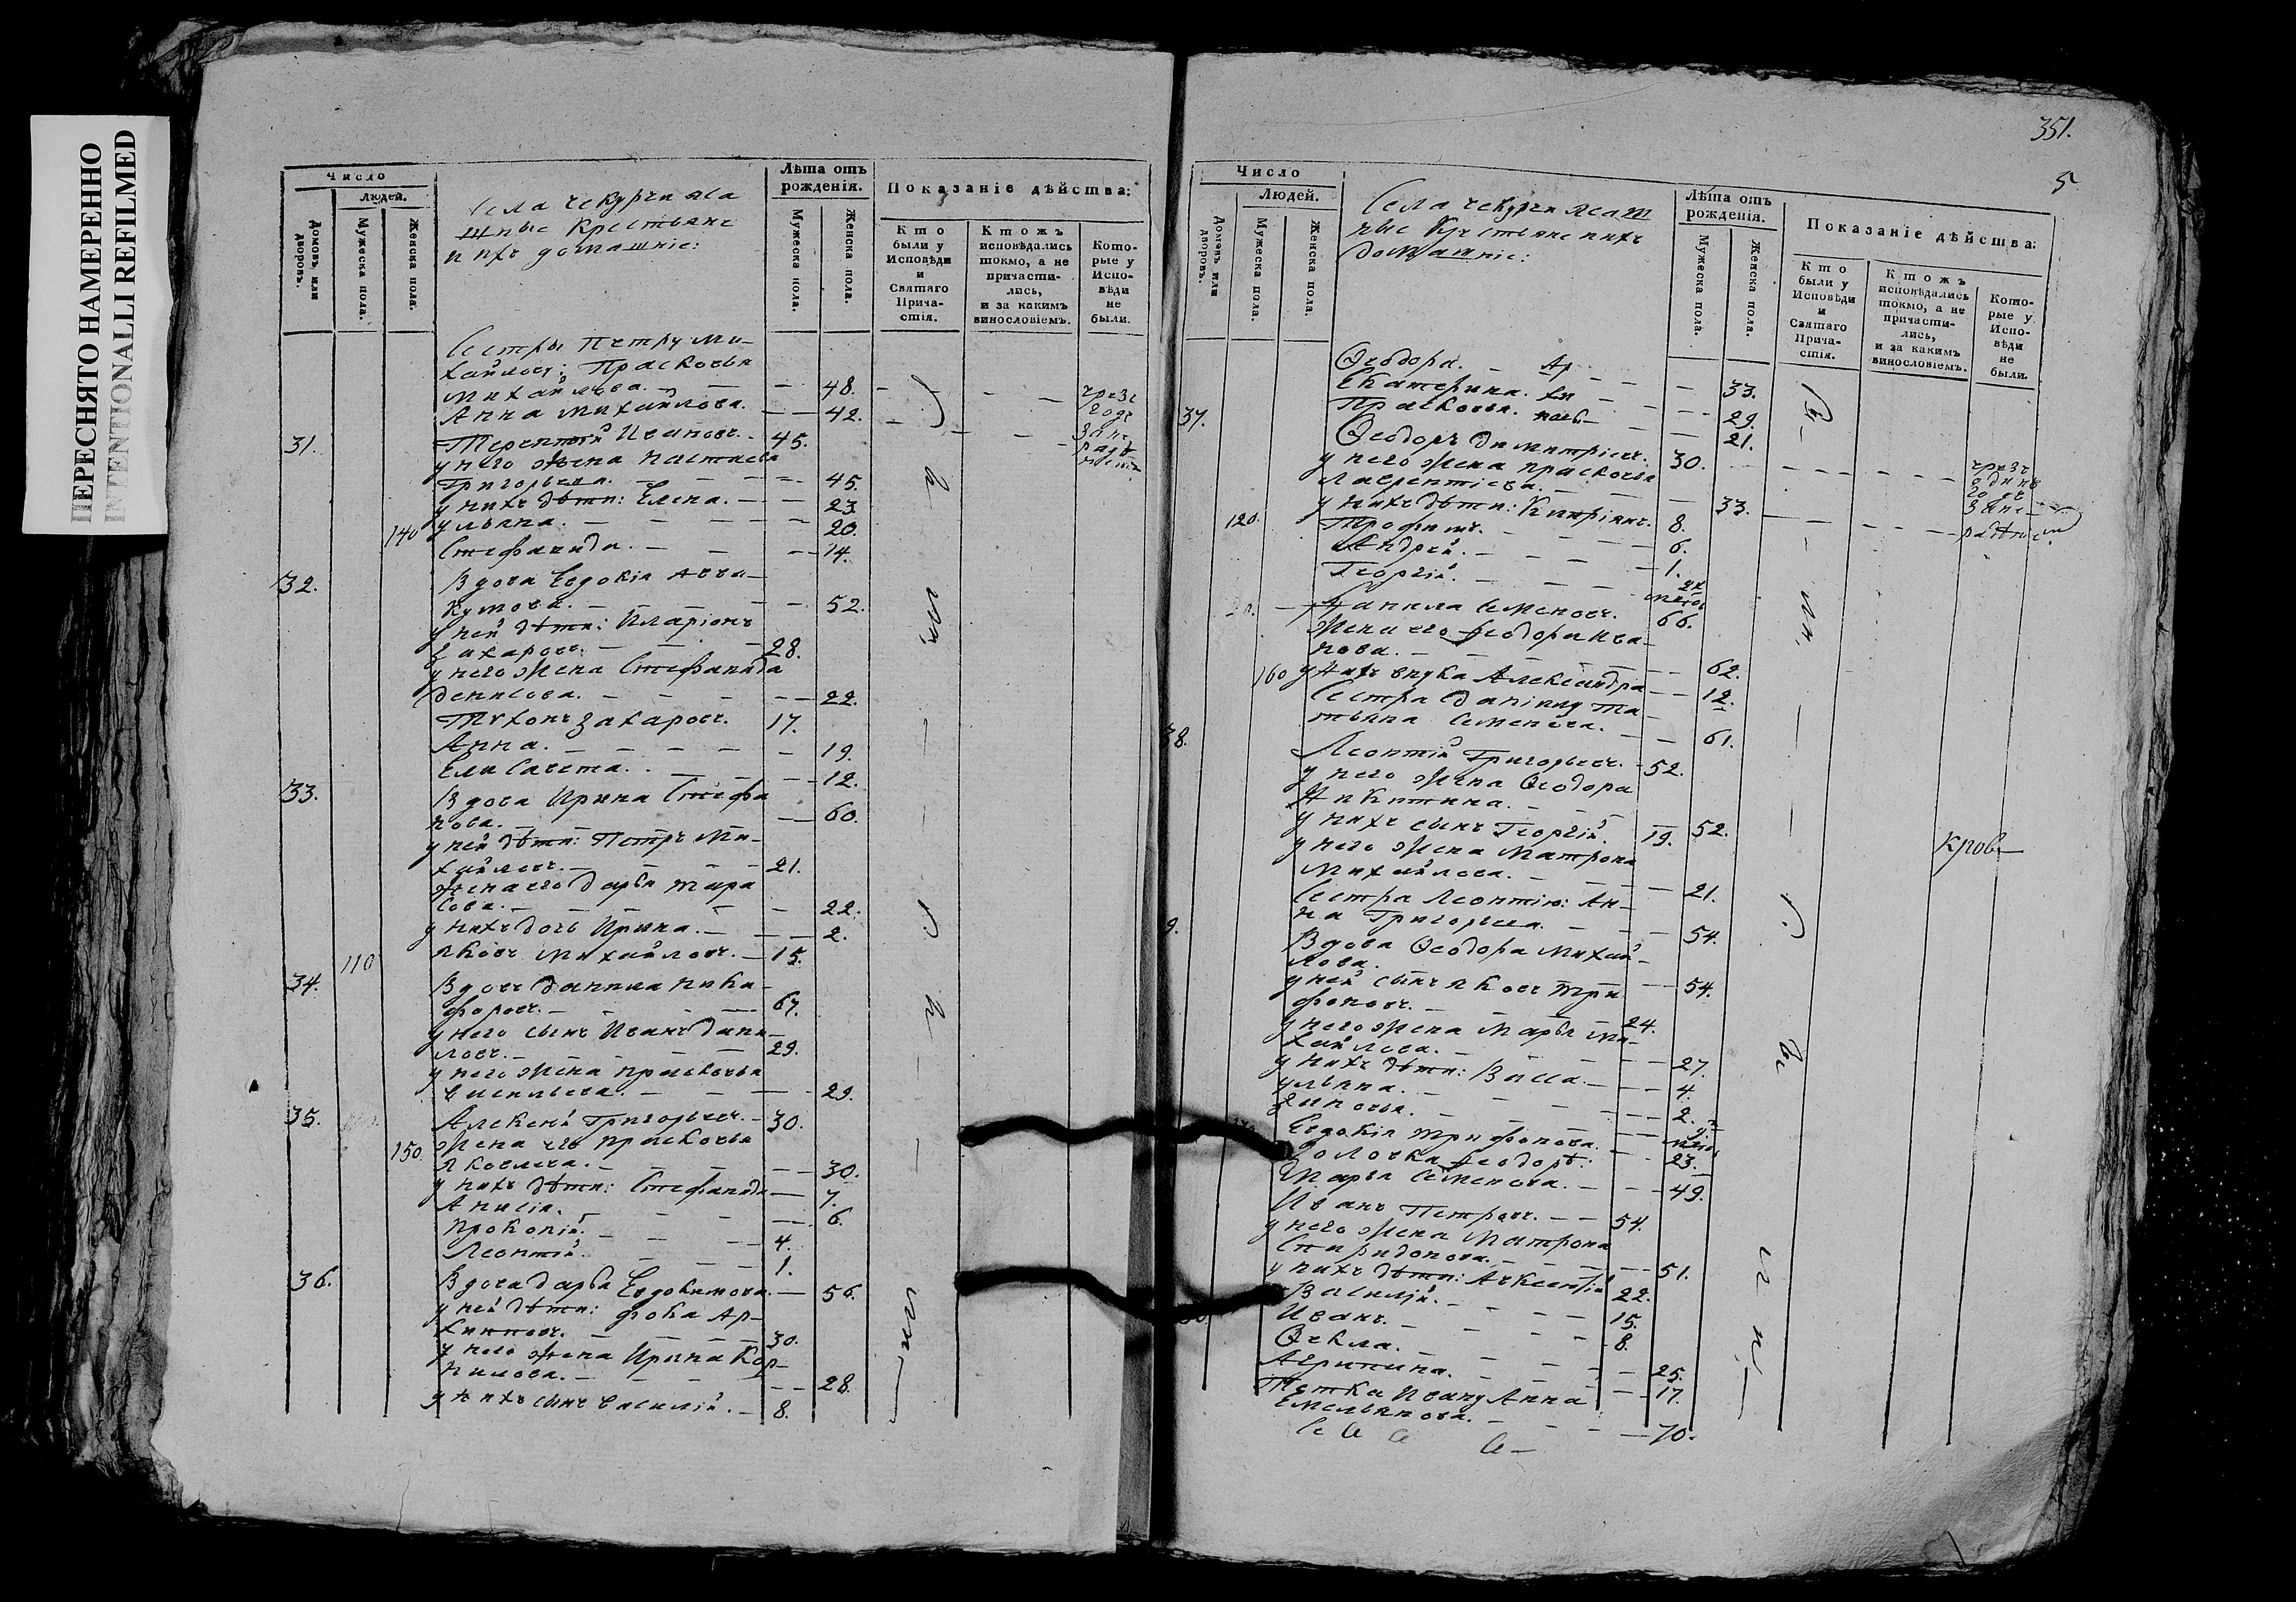 ПЕРЕСНЯТО НАМЕРЕННО
INTENTIONALLI REFILMED
Число
Людей.
Домовъ или дворовъ.
Мужеска пола.
Женска пола.
Села Чекурчи яса
шные Крестьяне
и ихъ домашніе:
Лѣта отъ рожденія.
Мужеска пола.
Женска пола.
Показаніе дѣйства:
Кто были у Исповѣди и Святаго Прича-стія.
Ктожъ исповѣдались токмо, а не причасти-лись, и за какимъ винословіемъ.
Кото-рые у Испо-вѣди не были.
Сестры Петру Ми-
хайлову: Прасковья
Михайлова. 48.
Анна Михайлова. 42.
31. Терентій Ивановъ. 45.
у него жена Настасья
Григорьева. 45.
у нихъ дѣти: Елена. 23
Ульяна. 20.
140 Стефанида. 14.
32. Вдова Евдокія Авва-
кумова. 52.
у ней дѣти: Иларіонъ
Захаровъ. 28.
у него жена Стефанида
Денисова. 22.
Тихонъ Захаровъ. 17.
Анна. 19.
Елисавета. 12.
33. Вдова Ирина Стефа
нова. 60.
у ней дѣти: Петръ Ми-
хайловъ. 21.
Жена его Дарья Тара
сова. 22.
у нихъ дочь Ирина. 2.
110 Яковъ Михайловъ. 15.
34. Вдовъ Данила Ники-
форовъ. 67.
у него сынъ Иванъ Дани-
ловъ. 29.
у него жена Прасковья
Васильева. 29.
35. Алексей Григорьевъ. 30.
150. Жена его Прасковья
Яковлева. 30.
у нихъ дѣти: Стефанида 7.
Анисія. 6.
Прокопій. 4.
Леонтій. 1.
36. Вдова Дарья Евдокимова. 56.
у ней дѣти: Фока Ар-
хиповъ. 30.
у него жена Ирина Кор-
нилова. 28.
у нихъ сынъ Василій. 8.
чрезъ
годъ
351.
5
Число
Людей.
Домовъ или дворовъ.
Мужеска пола.
Женска пола.
Села Чекурчи ясаш
ные Крестьяне и ихъ
домашніе:
Лѣта отъ рожденія.
Мужеска пола.
Женска пола.
Показаніе дѣйства:
Кто были у Исповѣди и Святаго Прича-стія.
Ктожъ исповѣдались токмо, а не причасти-лись, и за какимъ винословіемъ.
Кото-рые у Испо-вѣди не были.
Ѳеодора. 33.
Екатерина. 29.
Прасковья. 21.
37. Ѳеодоръ Димитріевъ. 30.
у него жена Прасковья
Лаврентіева. 33.
у нихъ дѣти: Кипріанъ. 8.
120. Трофимъ. 6.
Андрей. 1.
Георгій.
Данила Семеновъ. 66.
Жена его Ѳеодора Ива-
нова. 62.
160 у нихъ внука Александра 12.
Сестра Данилу Та-
тьяна Семенова. 61.
38. Леонтій Григорьевъ. 52.
у него жена Ѳеодора
Никитина. 52.
у нихъ сынъ Георгій. 19.
у него жена Матрона
Михайлова. 21.
Сестра Леонтію: Ан-
на Григорьева. 54.
9. Вдова Ѳеодора Михай-
лова. 54.
у ней сынъ Яковъ Три
фоновъ. 24.
у него жена Марья Ми-
хайлова. 27.
у нихъ дѣти: Васса. 4.
Ульяна. 2.
Зиновья.
Евдокія Трифонова. 23.
Золовка Ѳеодорѣ:
Марья Семенова. 49.
Иванъ Петровъ. 54.
у него жена Матрона
Спиридонова. 51.
у нихъ дѣти: Авксентій 22.
Василій. 15.
Иванъ. 8.
Ѳекла. 25.
Агрипина. 17.
Тетка Ивану Анна
Емельянова. 70.
чрезъ
одинъ
годъ